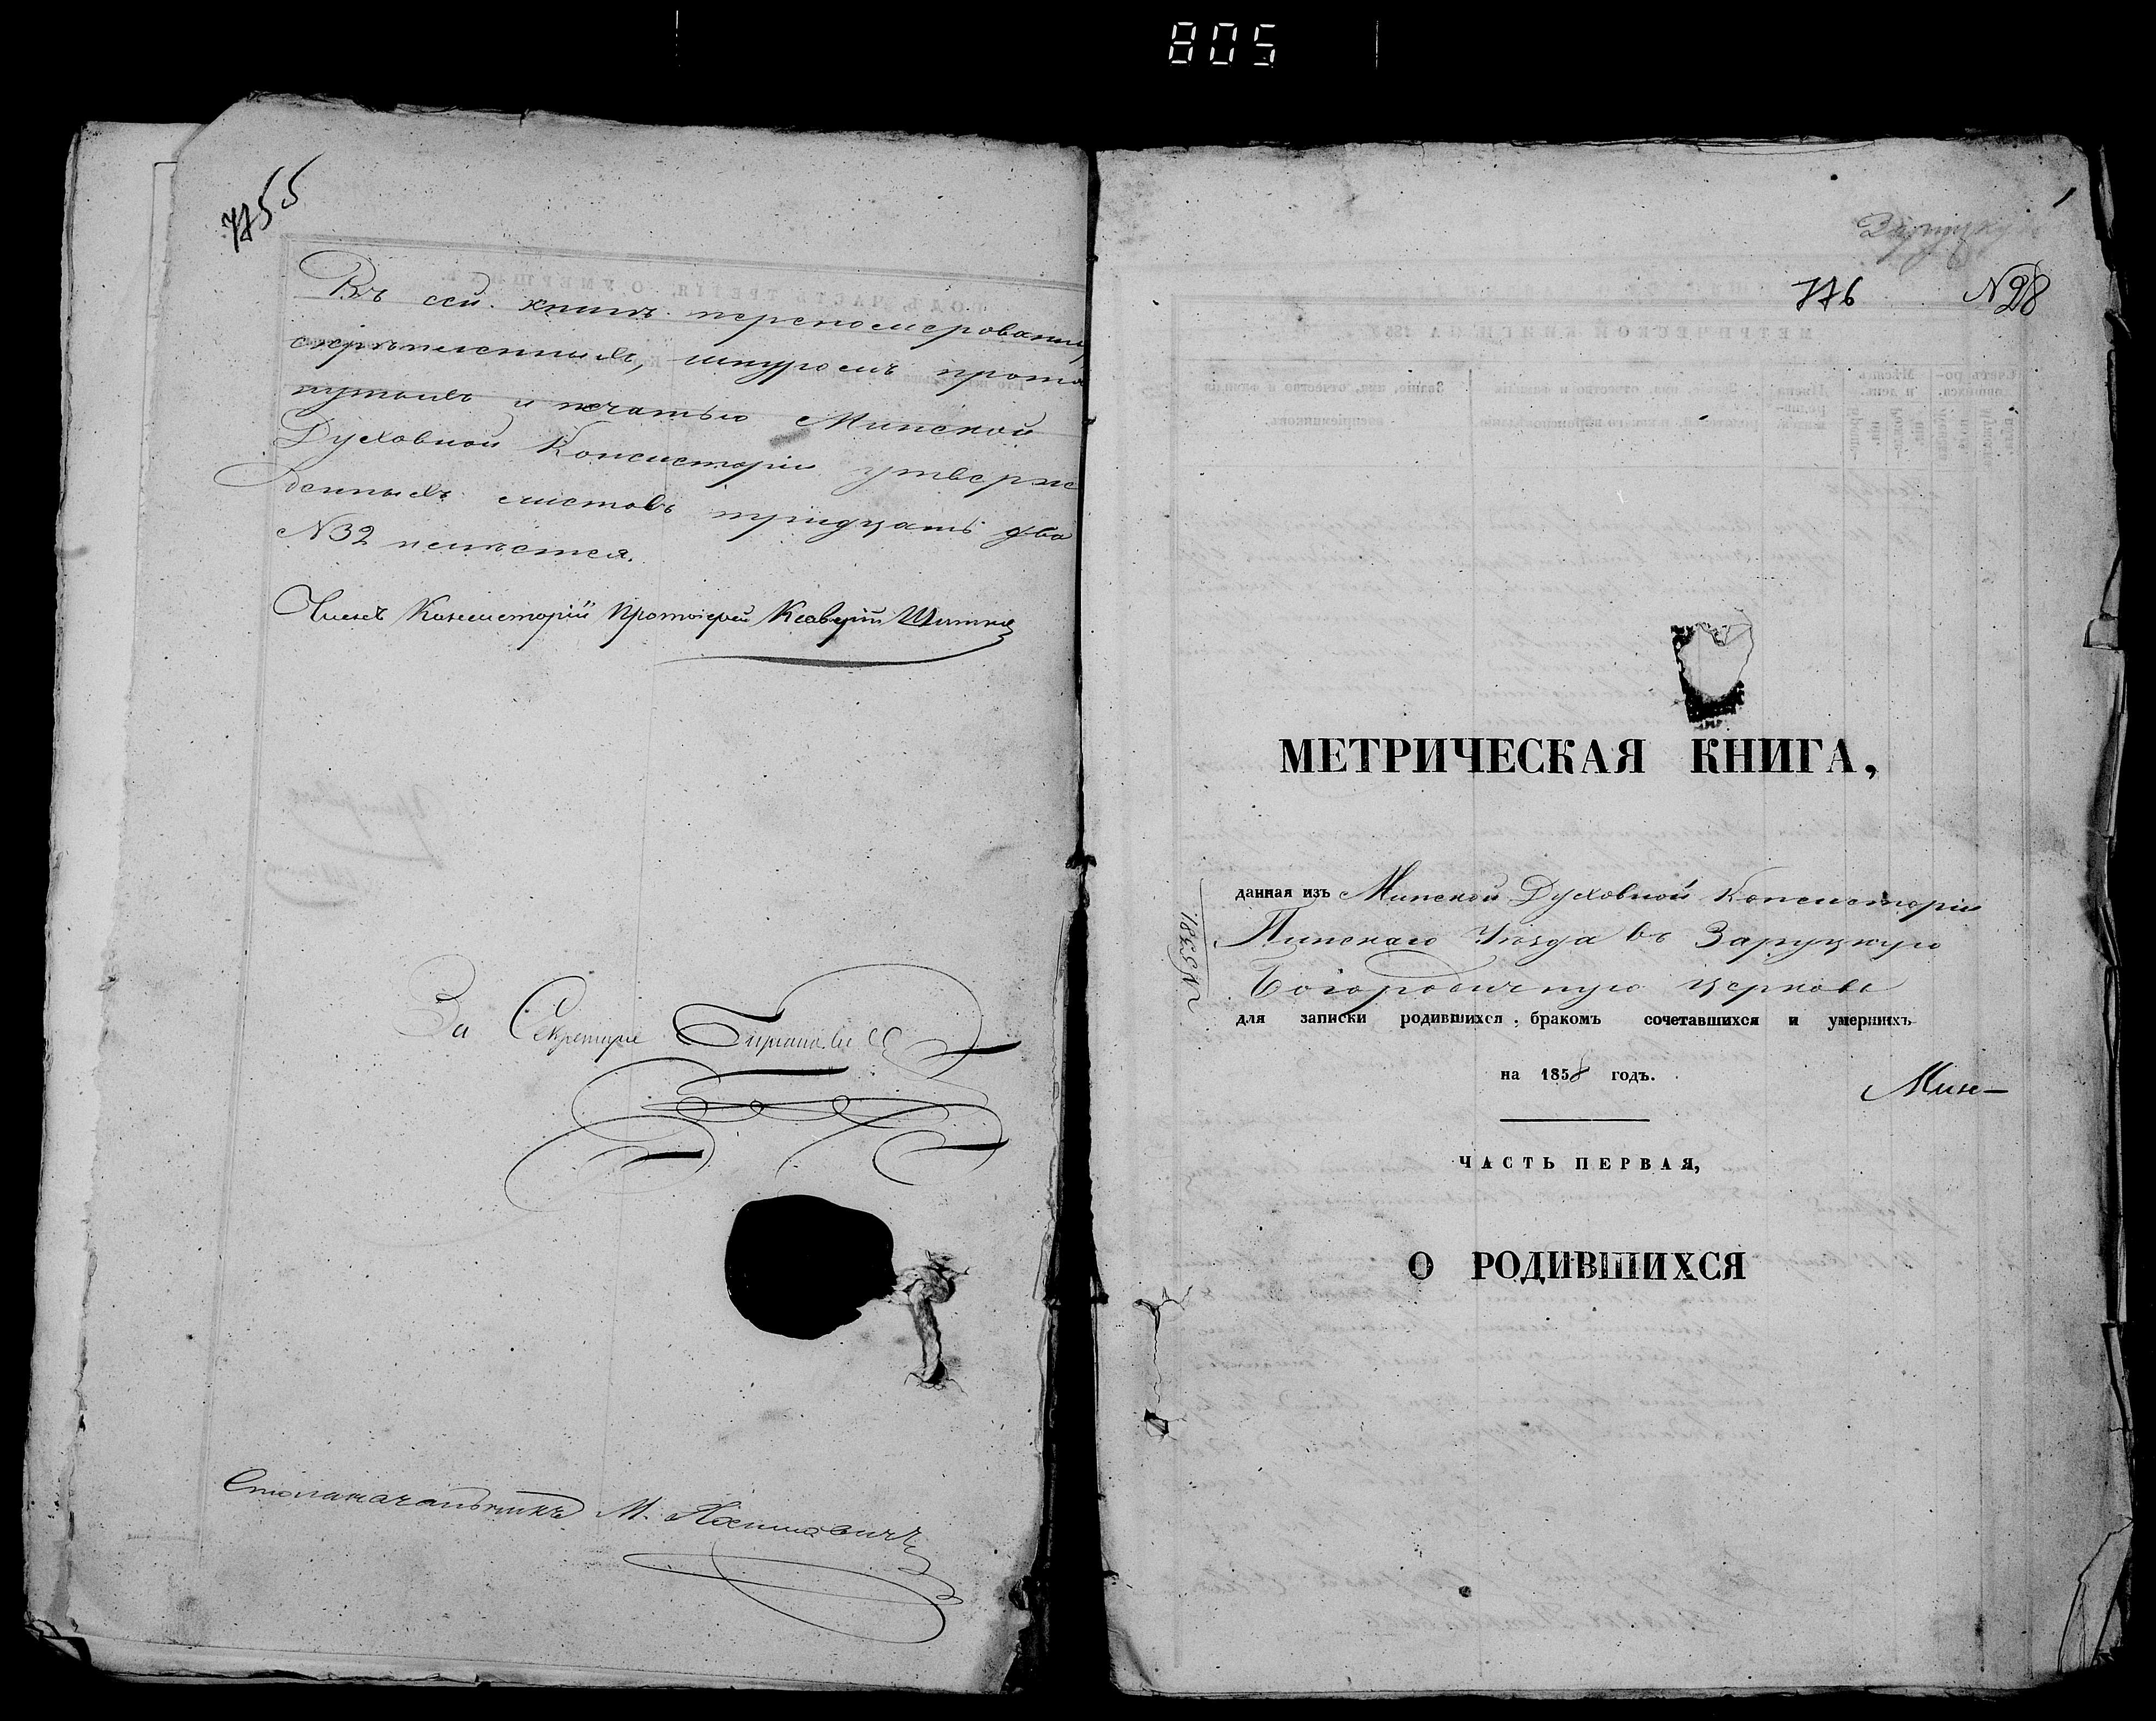 805
775
Въ сей книгѣ перенумерованныхъ,
скрѣпленныхъ, шнуромъ прото
нутыхъ и печатью Минской
Духовной Консисторіи утверж
денныхъ листовъ тридцать два
№32 испишется.
Членъ Консисторіи Протоіерей Ксаверій
За Секретаря
Столоначальникъ М.
776
№28
МЕТРИЧЕСКАЯ КНИГА,
данная изъ Минской Духовной Консисторіи
Пинскаго Уѣзда въ Заруцкую
Богородичную церковь
для записки родившихся, бракомъ сочетавшихся и умершихъ
на 1858 годъ.
Мин—
ЧАСТЬ ПЕРВАЯ,
О РОДИВШИХСЯ